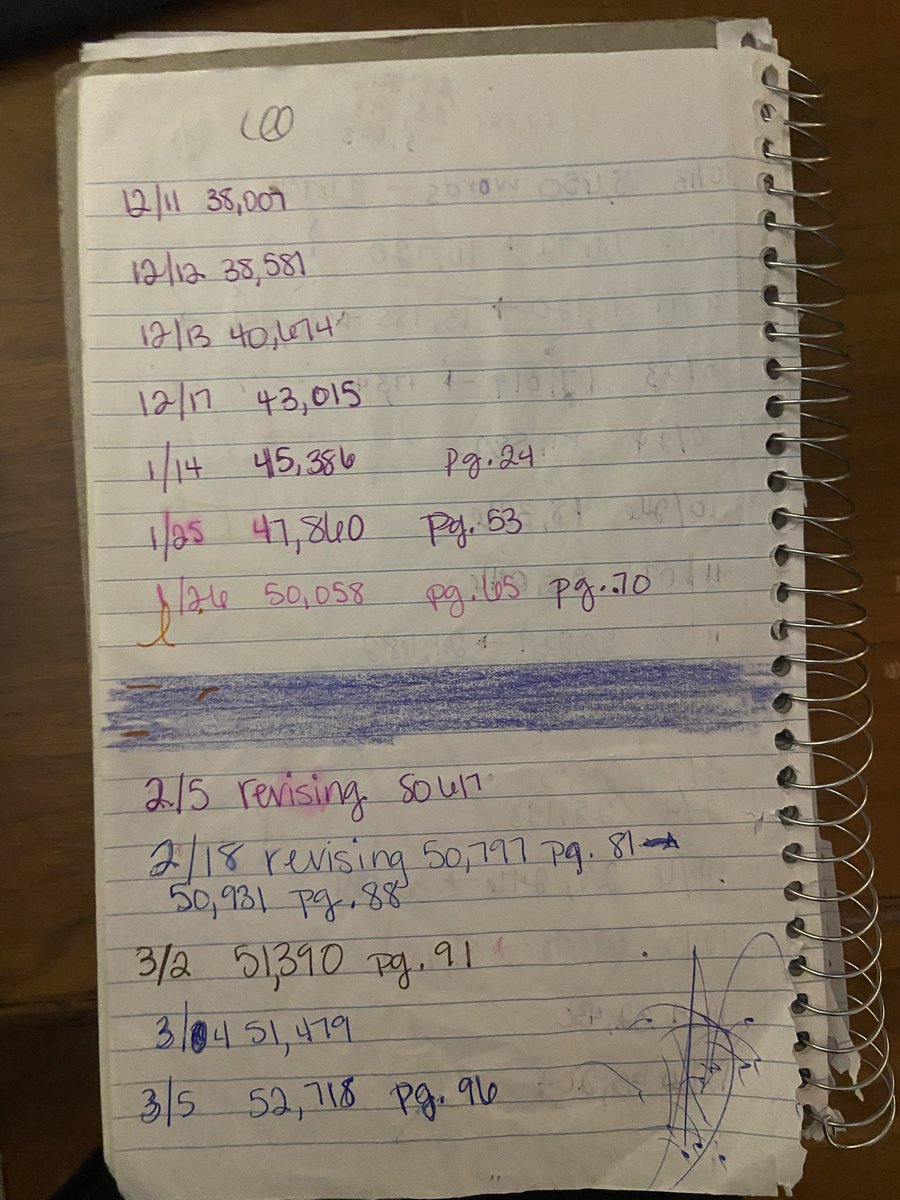 12/11 38,007
12/12 38,581
12/13 40,674
12/17 43,015
1/14 45,386 pg. 24
1/25 47,860 pg. 53
1/26 50,058 pg. 65 pg. 70
2/5 revising 50617
2/18 revising 50,797 pg. 81 →
50,931 pg. 88
3/2 51,390 pg. 91
3/4 51,479
3/5 52,718 pg. 96